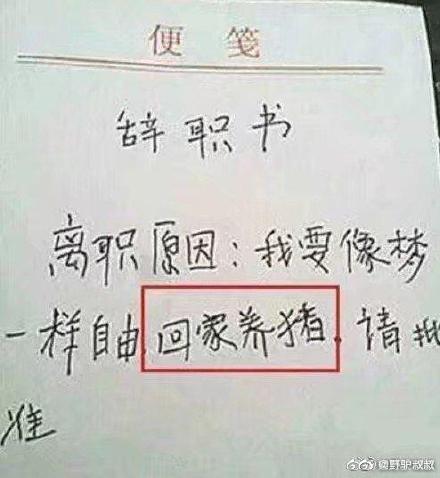 便笺
辞职书
离职原因:我要像梦
一样自由,回家养猪.请批
准
@野驴叔叔